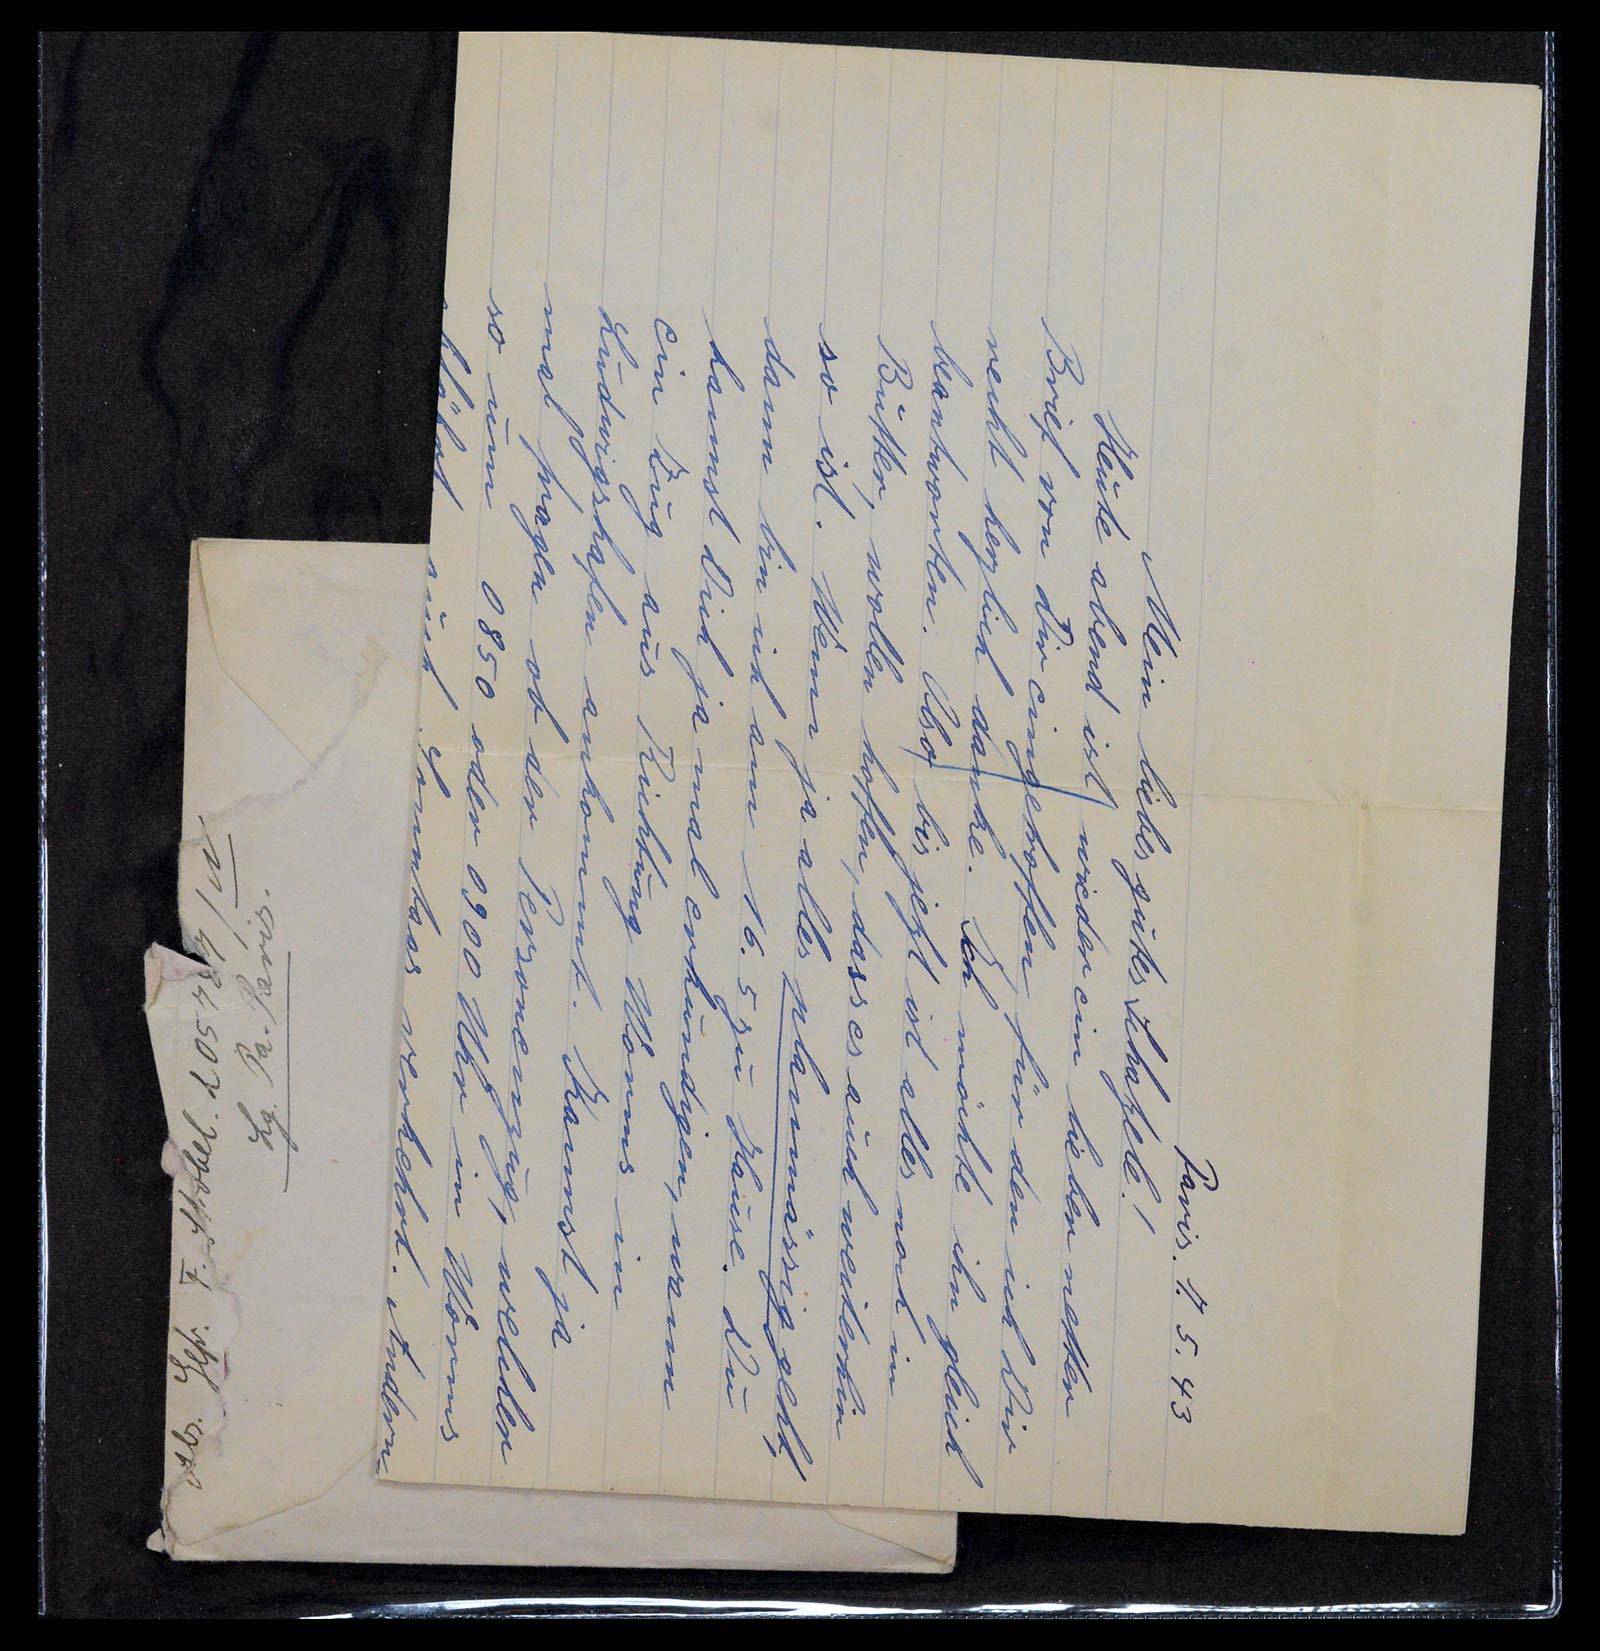 Paris. 7. 5. 43
Mein liebes gutes Schatzele!
Heute abend ist wieder ein lieben netter
Brief von Dir eingetroffen, für den ich Dir
recht herzlich danke. Ich möchte ihn gleich
beantworten. Also, bis jetzt ist alles noch in
Butter, wollen hoffen, dass es auch weiterhin
so ist. Wenn ja alles planmässig geht,
dann bin ich am 16. 5 zu Hause. Du
kannst Dich ja mal erkundigen, wann
ein Zug aus Richtung Worms in
Ludwigshafen ankommt. Kannst ja
mal fragen ob der Personenzug, welcher
so um 0850 oder 0900 Uhr in Worms
auch Sonntags verkehrt. Andern-
Abs. Gfr. F. Strobel. L 05484/IV
Lg. Pa. Paris.